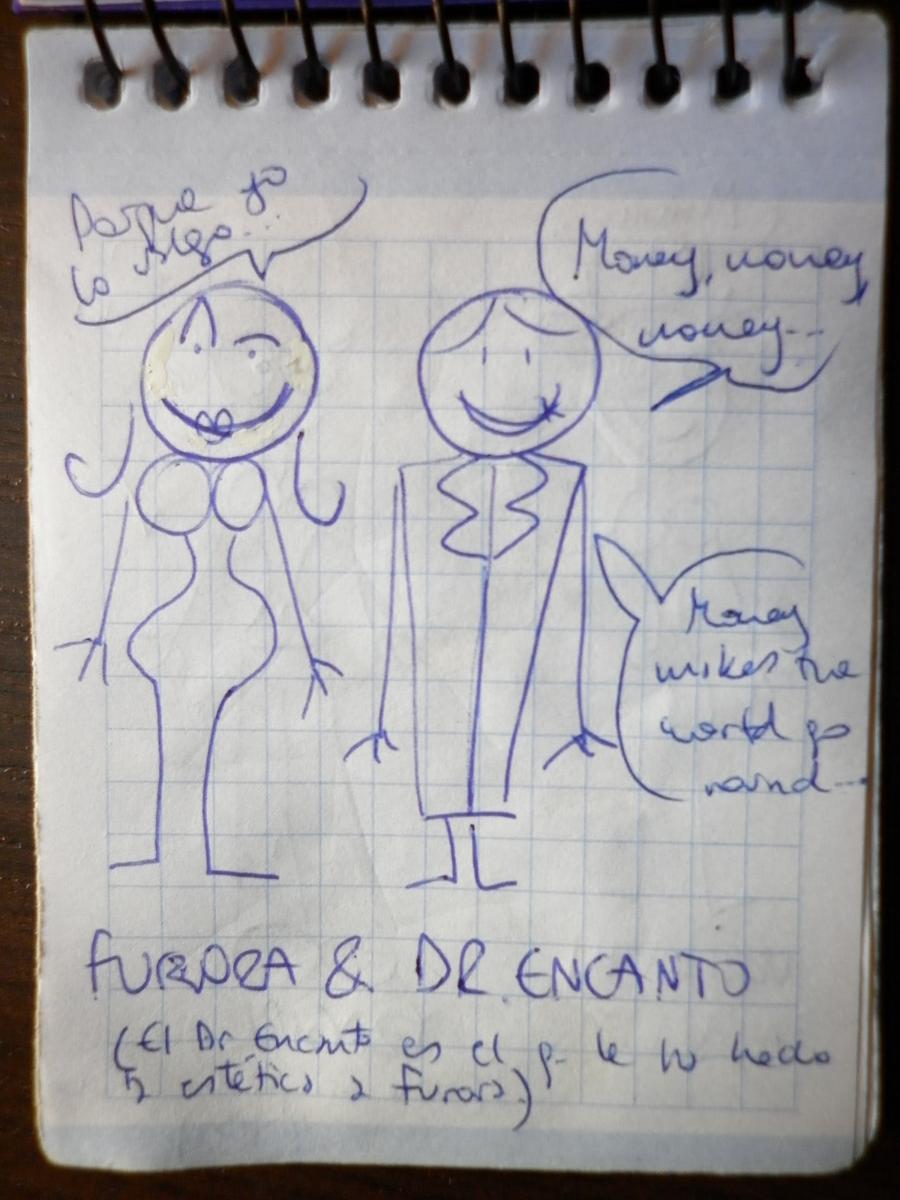 Porque yo
lo valgo...
Money, money,
money...
Money
makes the
world go
round...
FURORA & DR. ENCANTO
(El Dr. Encanto es el q le ha hecho
la estética a Furora)